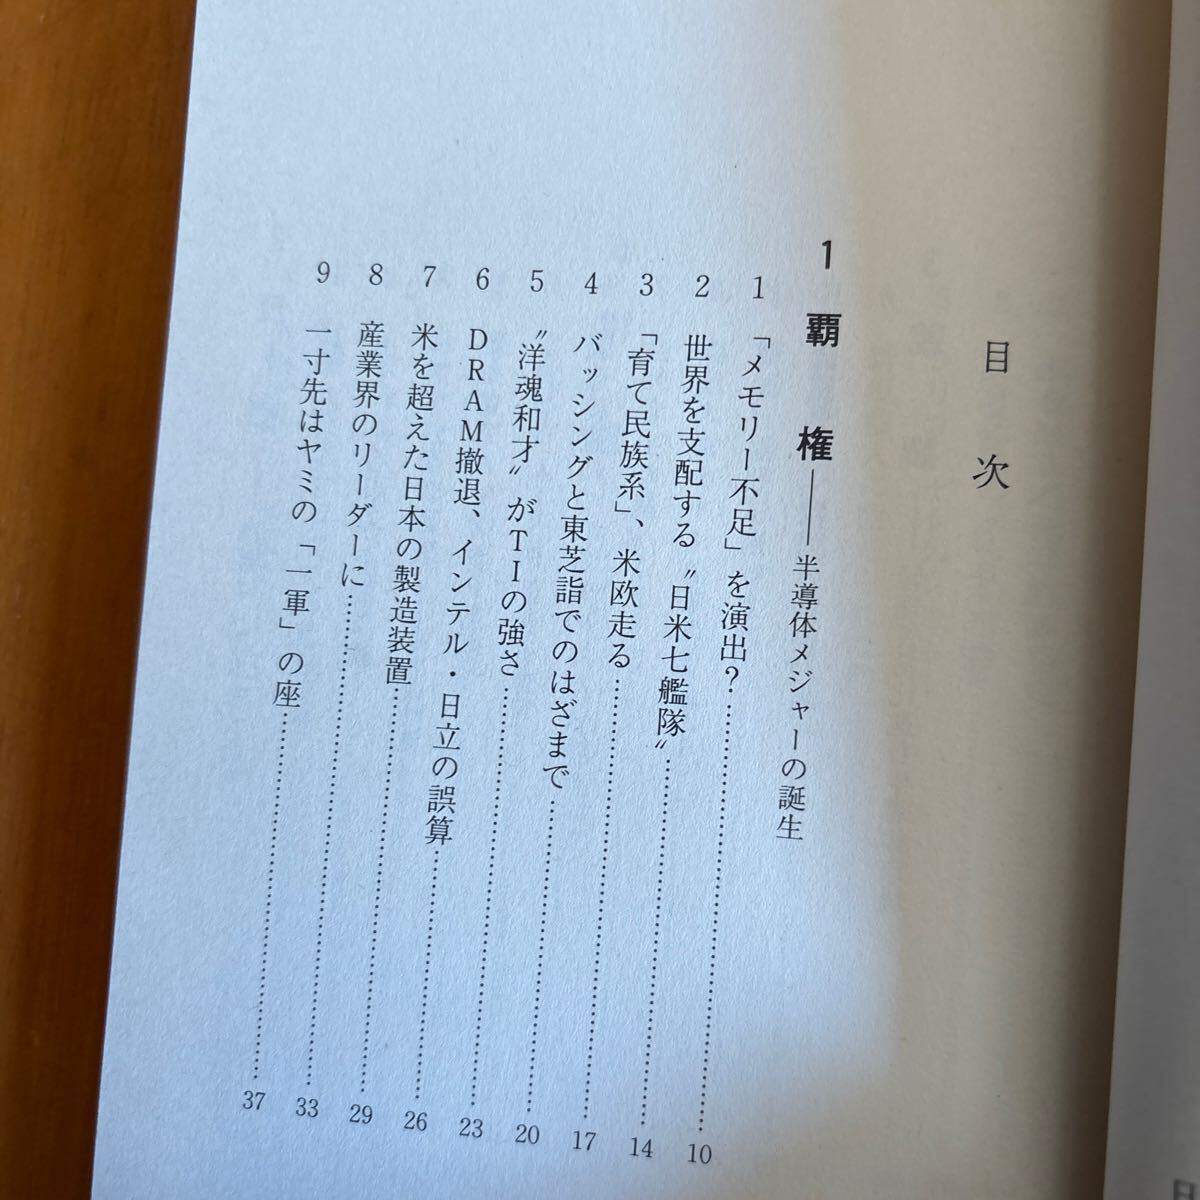 目次
1 覇権——半導体メジャーの誕生
1 「メモリー不足」を演出?……10
2 世界を支配する〝日米七艦隊〟……14
3 「育て民族系」、米欧走る……17
4 バッシングと東芝詣でのはざまで……20
5 〝洋魂和才〟がTIの強さ……23
6 DRAM撤退、インテル・日立の誤算……26
7 米を超えた日本の製造装置……29
8 産業界のリーダーに……33
9 一寸先はヤミの「一軍」の座……37